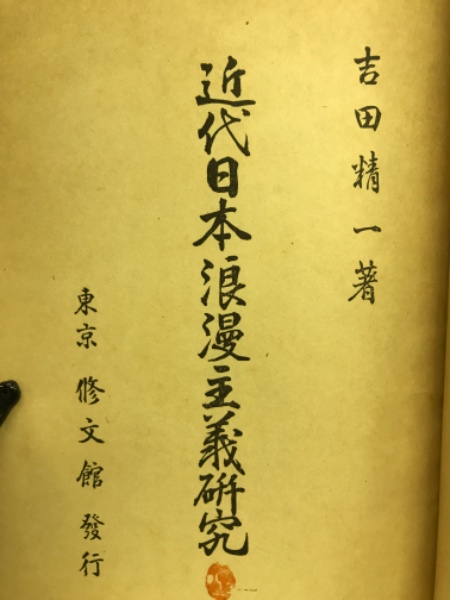 吉田精一著
近代日本浪漫主義研究
東京 修文館發行